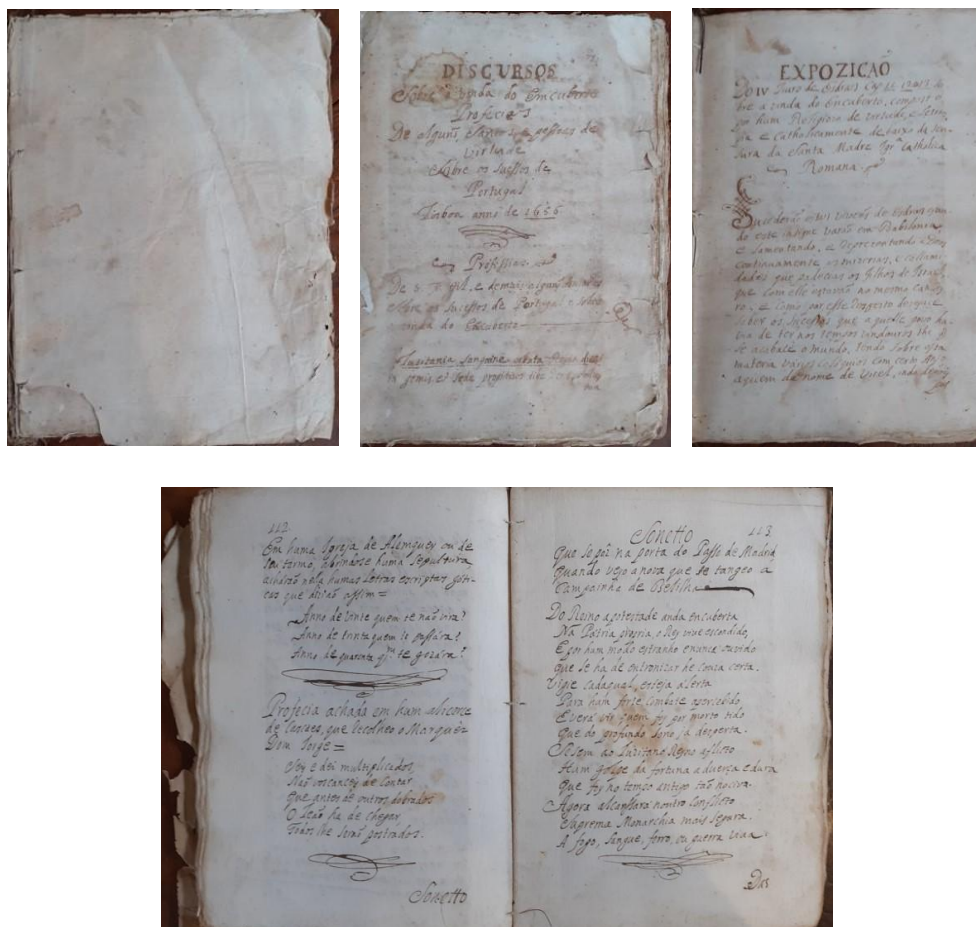 DISCURSOS
Sobre a vinda do Emcuberto
Profecias
De alguñs Santos, e pessoas de
virtude
Sobre os sucessos de
Portugal
Lisboa anno de 1656
Professias
De S. e demais alguns
sobre os sucessos de Portugal e sobre
a vinda do Encuberto
Lusitania sanguine
EXPOZICAÕ
Do IV Livro de Esdras Cap. so
bre a vinda do Encuberto, compost
por hum Religioso de virtude, e letras
e Catholicamente de baixo da sen
sura da Santa Madre Igra Catholica
Romana.
Sucederaõ estas vizoens de Esdras quan
do este insigne varaõ em Babilonia
e lamentando, e
continuamente as mizerias, e callami
dades que padecias os filhos de Israel,
que com elle estavaõ no mesmo cati
ro, e como por este respeito dezejase
saber os sucessos que aquelle povo ha
via de ter nos tempos vindouros the
se acabate o mundo, tendo sobre esta
materia varios colloquios com hum Anjo
aquem dá nome de Uriel,
112
Em huma Igreja de Alemquer ou de
seu termo, abrindose huma sepultura
acharaõ nela humas letras escriptas góti-
cas que diziaõ assim =
Anno de vinte quem te naõ vira?
Anno de trinta quem te passára?
Anno de quarenta qm te gozára?
Profecia achada em hum alicerse
de Cazites, que recolheo o Marquez
Dom Jorge =
Sey e dei multiplicados,
Naõ vos canceis de contar
Que antes de outros dobrados
O Leaõ ha de chegar
Todos lhe seraõ postrados.
Sonetto
Sonetto 113
Que se pôs na porta do Passo de Madrid
quando veyo a nova que se tangeo a
Campainha de Belilha
Do Reino a potestade anda encuberta
Na Patria propria, o Rey vive escondido,
E por hum modo estranho e nunca ouvido
que se ha de entronizar he couza certa.
Vigie cadaqual, esteja alerta
Para hum forte combate apercebido,
E verá vir quem foy por morto tido
Que do profundo sono já desperta.
Se sem do Luzitano Reyno aflicto
Hum golpe da fortuna adverça e dura
Que foy no tempo antigo taõ nociva.
Agora alcansará noutro Conflicto
Suprema Monarchia mais segura.
A fogo, sangue, ferro, ou guerra viva.
Das